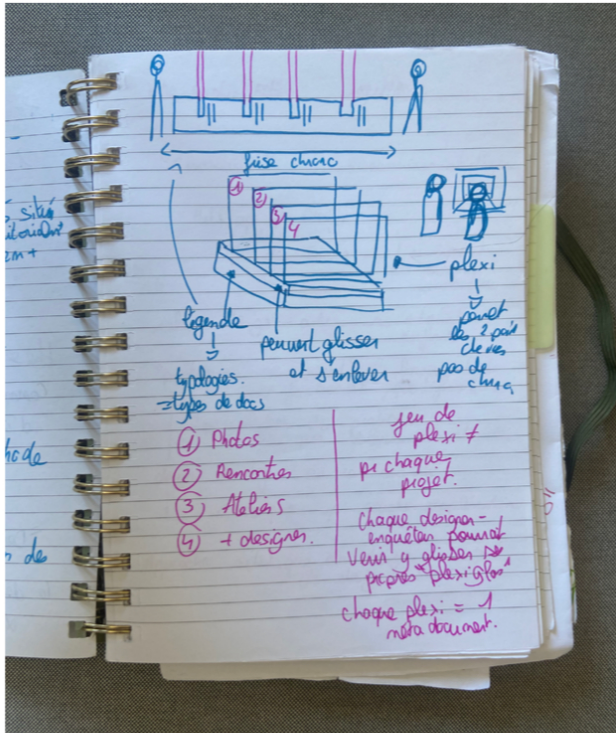 frise chrono
1
2
3
4
plexi
permet
les 2 pa
de vues
pas de
chro
légende
peuvent glisser
et s'enlever
typologies.
=types de docs
1 Photos
2 Rencontres
3 Ateliers
4 + designer.
jeu de
plexi ≠
pr chaque
projet.
Chaque designer-
enquêteur pourrait
venir y glisser
propres "plexiglas"
chaque plexi = 1
méta document.
sités
en+
de